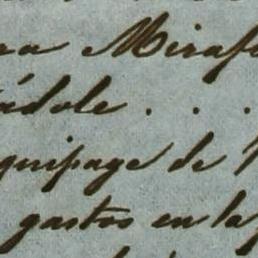 ra Miraf
ádole . . .
quipage de
gastos en la